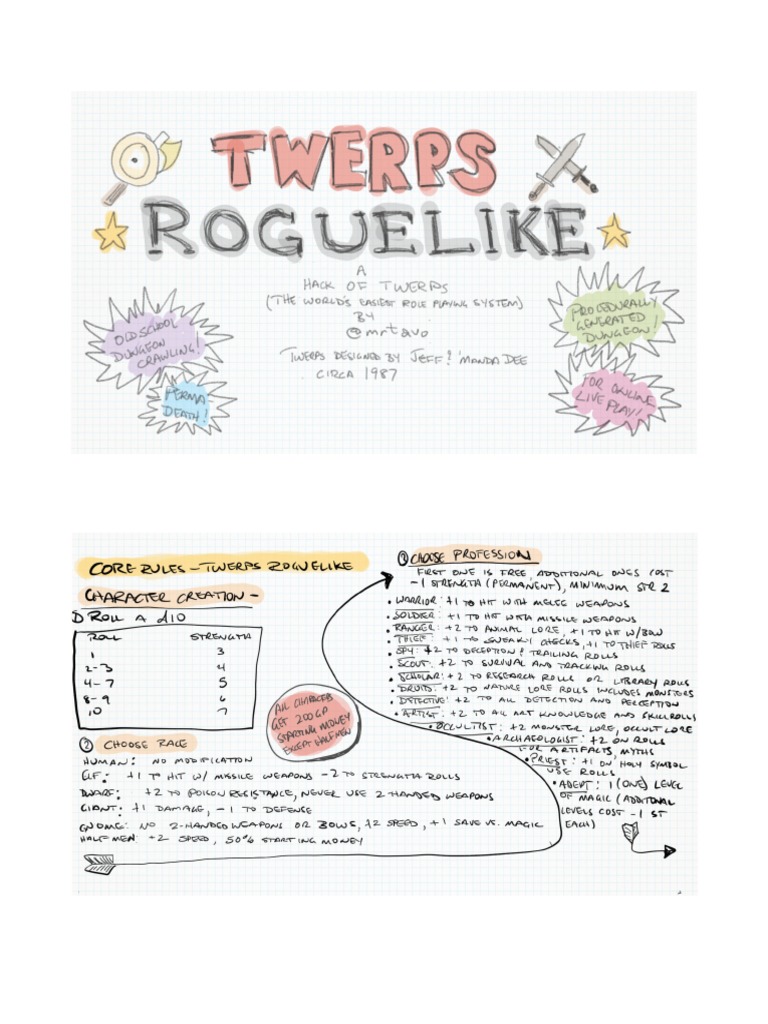 TWERPS
ROGUELIKE
A
HACK OF TWERPS
(THE WORLD'S EASIEST ROLE PLAYING SYSTEM)
BY
@mrtavo
TWERPS DESIGNED BY JEFF & 'MANDA DEE
CIRCA 1987
OLD SCHOOL
DUNGEON
CRAWLING!
PERMA
DEATH!
PROCEDURALLY
GENERATED
DUNGEON!
FOR ONLINE
LIVE PLAY!
CORE RULES - TWERPS ROGUELIKE
CHARACTER CREATION -
① ROLL A d10
ROLL STRENGTH
1 3
2-3 4
4-7 5
8-9 6
10 7
ALL CHARACTERS
GET 200 GP
STARTING MONEY
EXCEPT HALFMEN
② CHOOSE RACE
HUMAN: NO MODIFICATION
ELF: +1 TO HIT W/ MISSILE WEAPONS -2 TO STRENGTH ROLLS
DWARF: +2 TO POISON RESISTANCE, NEVER USE 2 HANDED WEAPONS
GIANT: +1 DAMAGE, -1 TO DEFENSE
GNOME: NO 2-HANDED WEAPONS OR BOWS, +2 SPEED, +1 SAVE VS. MAGIC
HALFMEN: +2 SPEED, 50% STARTING MONEY
③ CHOOSE PROFESSION
FIRST ONE IS FREE, ADDITIONAL ONES COST
-1 STRENGTH (PERMANENT), MINIMUM STR 2
• WARRIOR: +1 TO HIT WITH MELEE WEAPONS
• SOLDIER: +1 TO HIT WITH MISSILE WEAPONS
• RANGER: +2 TO ANIMAL LORE, +1 TO HIT W/BOW
• THIEF: +1 TO SNEAKY CHECKS, +1 TO THIEF ROLLS
• SPY: +2 TO DECEPTION & TRAILING ROLLS
• SCOUT: +2 TO SURVIVAL AND TRACKING ROLLS
• SCHOLAR: +2 TO RESEARCH ROLLS OR LIBRARY ROLLS
• DRUID: +2 TO NATURE LORE ROLLS INCLUDES MONSTERS
• DETECTIVE: +2 TO ALL DETECTION AND PERCEPTION
• ARTIST: +2 TO ALL ART KNOWLEDGE AND SKILL ROLLS
• OCCULTIST: +2 MONSTER LORE, OCCULT LORE
• ARCHAEOLOGIST: +2 ON ROLLS
FOR ARTIFACTS, MYTHS
• PRIEST: +1 ON HOLY SYMBOL
USE ROLLS
• ADEPT: 1 (ONE) LEVEL
OF MAGIC (ADDITIONAL
LEVELS COST -1 ST
EACH)